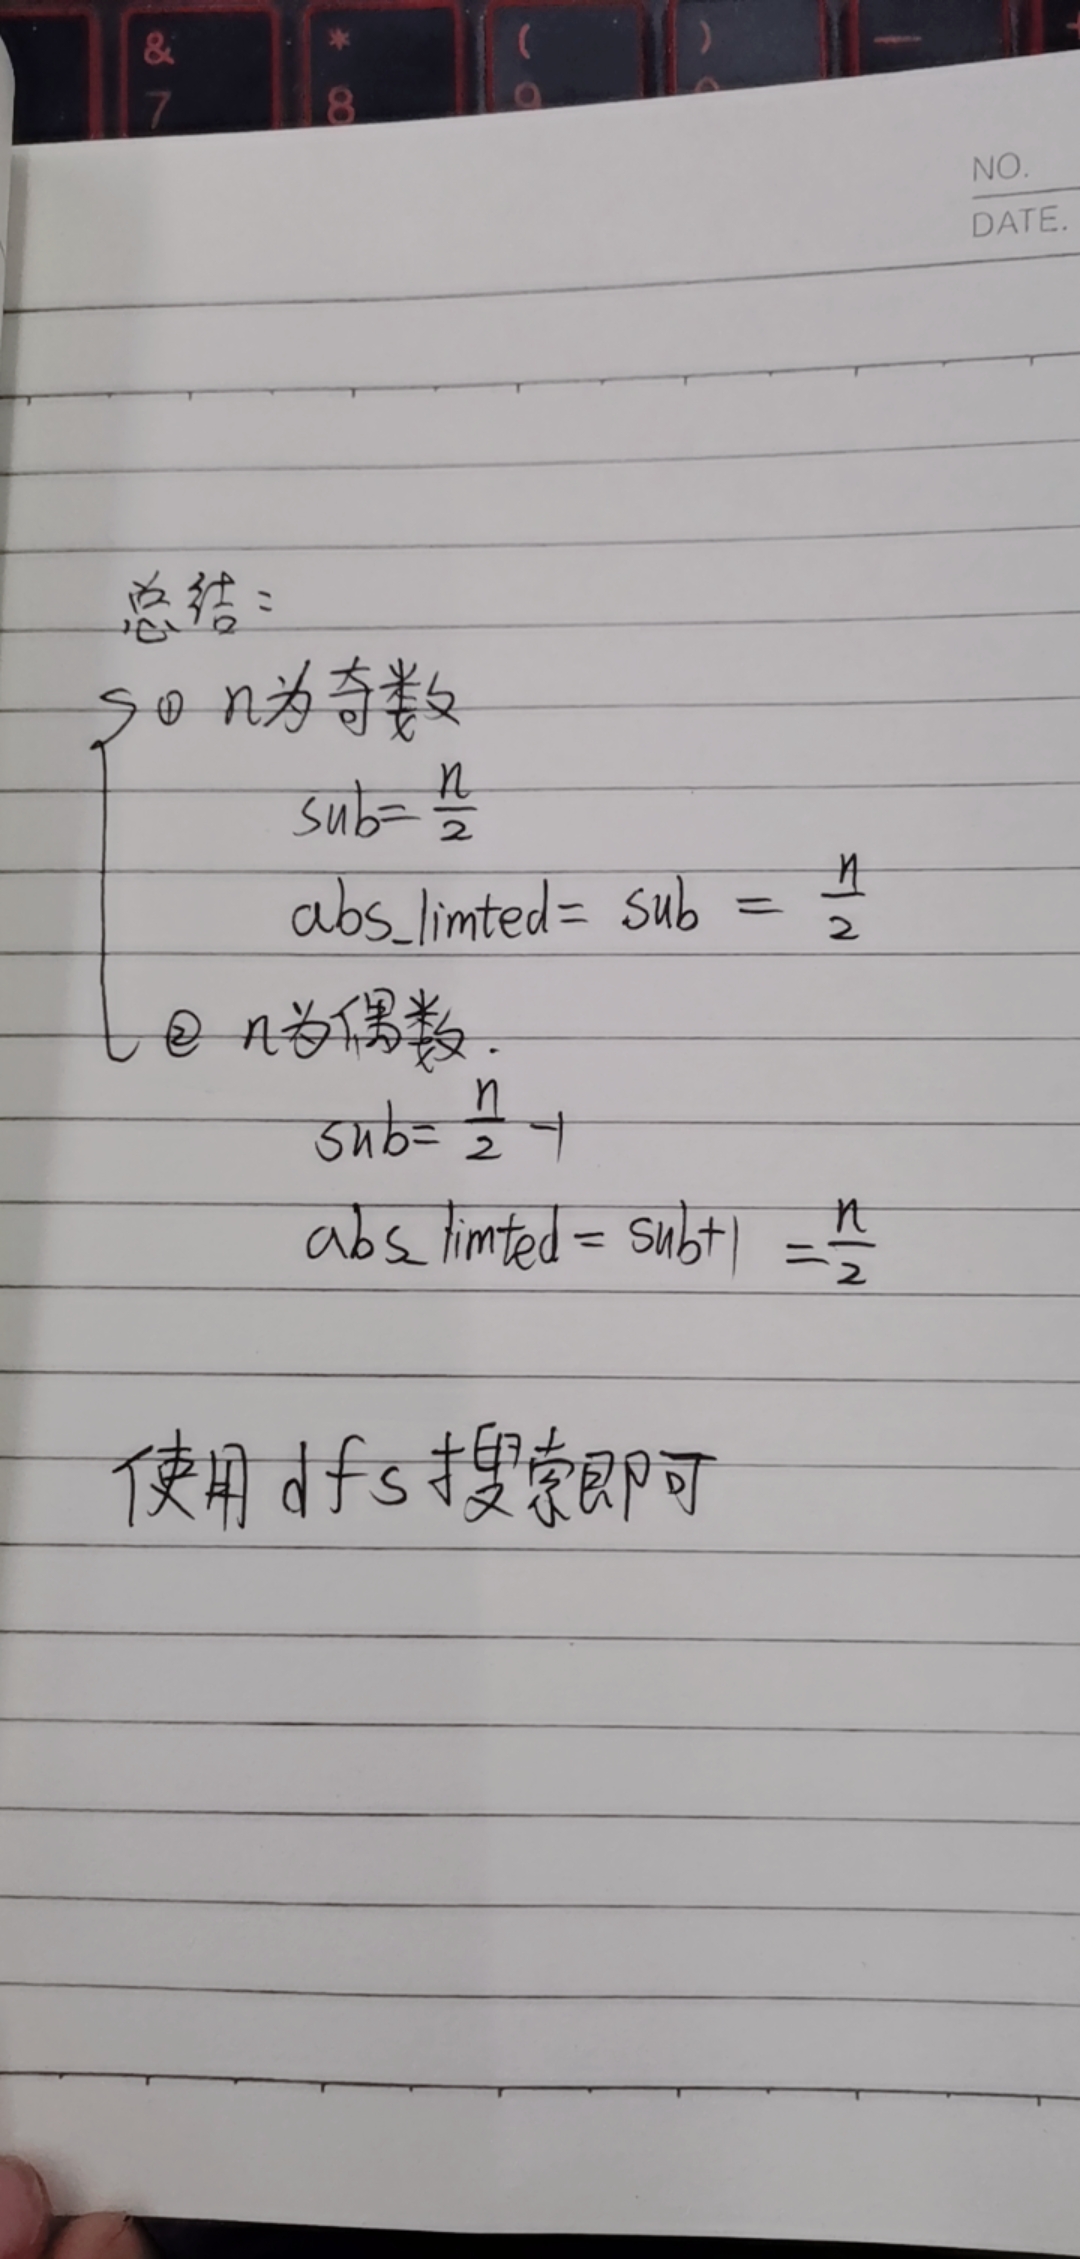 &
7
*
8
(
9
)
NO.
DATE.
总结:
① n为奇数
sub=n/2
abs_limted= sub = n/2
② n为偶数.
sub= n/2 -1
abs_limted = sub+1 = n/2
使用dfs搜索即可